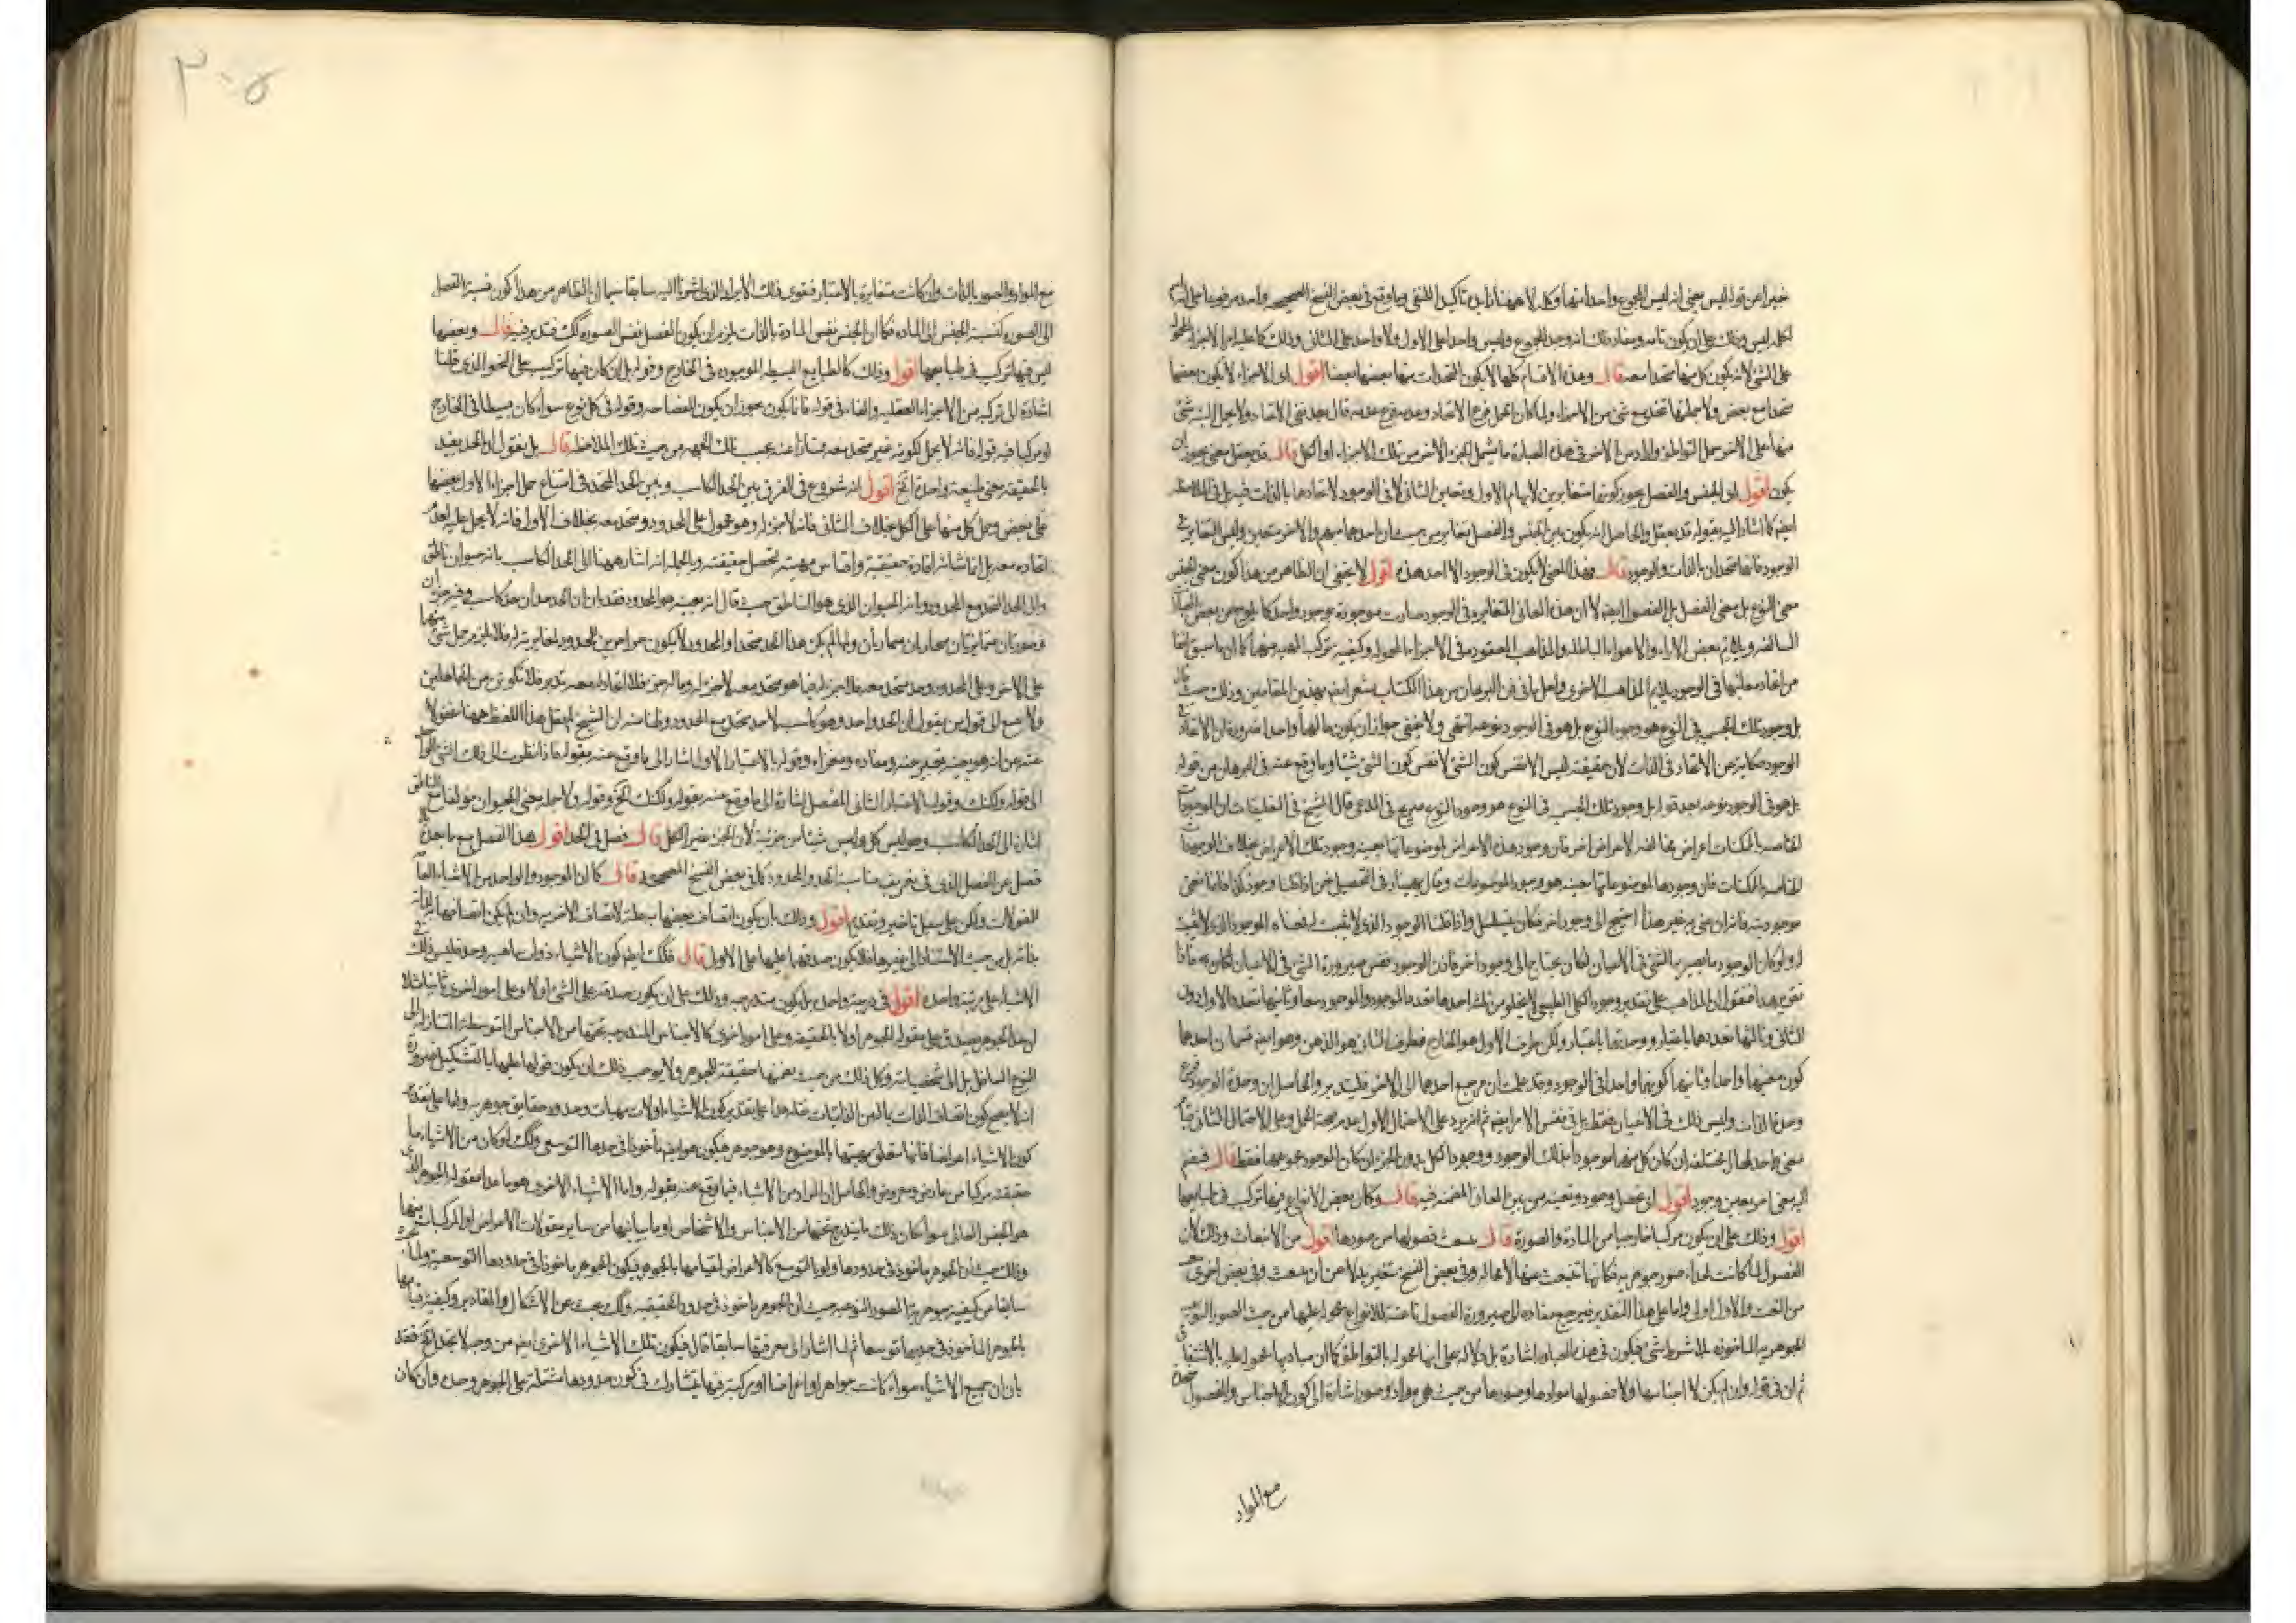 خبرا عن قوله ليس يعنى انه ليس المجموع واحدا منها وكلمة لا ههنا زايدة تأكيدا للنفى وما وقع فى بعض النسخ الصحيحة واحد مرفوعا على انه اسم
لكلمة ليس وذلك على ان يكون تامة ومفاد ذلك انه وجد المجموع وليس واحدا على الاول ولا واحد على الثانى وذلك
على الشئ لانه يكون كل منها متحدا معه قال وهذه الاقسام كلها لا يكون المتحدات منها بعضها بعضا اقول اى الاجزاء لا يكون بعضها
متحدا مع بعض ولا جملتها تتحد مع شئ من الاجزاء ولما كان الحمل فرع الاتحاد وعدمه فرع عدمه قال بعد نفى الاتحاد ولا يحمل البتة شئ
منها على الاخر حمل التواطؤ واراد من الاخر فى هذه العبارة ما يشمل الجزء الاخر من تلك الاجزاء او الكل قال قد يعقل معنى يجوز ان
يكون اقول اى الجنس والفصل يجوز كونهما متغايرين لابهام الاول وتعين الثانى لا فى الوجود لاتحادهما بالذات فيه بل فى الملاحظة
ايضا كما اشار اليه بقوله قد يعقل والحاصل انه يكون بين الجنس والفصل تغاير من حيث ان احدهما مبهم والاخر متعين وليس التغاير فى
الوجود فانهما متحدان بالذات والوجود قال وهذا المعنى لا يكون فى الوجود الا احد هذه اقول لا يخفى ان الظاهر من هذا كون معنى الجنس
معنى النوع بل معنى الفصل بل الفصول ايضا لا ان هذه المعانى المتغايرة فى الوجود صارت موجودة بوجود واحد كما يلوح من بعض
السالفة ويلايم بعض الاراء والاهواء الباطلة والمذاهب المعقودة فى الاجزاء المحمولة وكيفية تركب المهية منها كما ان ما سبق انفا
من اتحاد معانيها فى الوجود يلايم المذاهب الاخرى ولعل ما فى فن البرهان من هذا الكتاب يشعر ايضا بهذين المقامين وذلك حيث قال
بل وجود تلك الجنس فى النوع هو وجود النوع بل هو فى الوجود نوعه انتهى ولا يخفى جواز ان يكون مآلهما واحدا ضرورة ان الاتحاد فى
الوجود حكاية عن الاتحاد فى الذات لان حقيقته ليس الا نفس كون الشئ لا نفس كون الشئ شيئا وما وقع عنه فى البرهان من قوله
بل هو فى الوجود نوعه بعد قوله بل وجود تلك الجنس فى النوع هو وجود النوع صريح فى المدعى قال الشيخ فى التعليقات ان الوجود
الخاصة بالممكنات اعراض مخالفة لاعراض اخر فان وجود هذه الاعراض لموضوعاتها بعينه وجود تلك الاعراض بخلاف الوجودات
الخاصة بالممكنات فان وجودها لموضوعاتها بعينه هو وجود الموضوعات وقال بهمنيار فى التحصيل نحن اذا قلنا وجود كذا فانما نعنى
موجوديته فانه ان عنى به غير هذا احتيج الى وجود اخر فكان يتسلسل واذا قلنا الموجود الذى لا يثبت
او لو كان الوجود ما يصير به الشئ فى الاعيان لكان يحتاج الى وجود اخر فاذن الوجود نفس صيرورة الشئ فى الاعيان فاذا
تقرر هذا فنقول ان المذاهب على تقدير وجود الكلى الطبيعى لا يخلو من ثلث احدها تعدد الوجود والموجود معا وثانيها تعدد الاول دون
الثانى وثالثها تعددهما باعتبار ووحدتهما باعتبار ولكن ظرف الاول هو الخارج فظرف الثانى هو الذهن وهو ايضا قسمان احدهما
كون معنيهما واحدا وثانيهما كونهما واحدا فى الوجود وقد علمت ان مرجع احدهما الى الاخر فليتدبر والحاصل ان وحدة الوجود فرع
وحدة الذات وليس ذلك فى الاعيان فقط بل فى نفس الامر ايضا ثم انه يرد على الاحتمال الاول عدم صحة الحمل وعلى الاحتمال الثانى قيام
معنى واحد لمحال مختلفة ان كان كل منهما موجودا بذلك الوجود ووجود الكل بدون الجزء ان كان الموجود مجموعهما فقط قال
اليه معنى اخر يعين وجوده اقول اى تحصل وجوده وتعينه من بين المعانى المضمنة فيه قال وكان بعض الانواع فيها تركب فى طبايعها
اقول وذلك على ان يكون مركبا خارجيا من المادة والصورة قال ينبعث فصولها من صورها اقول من الانبعاث وذلك لان
الفصول لما كانت بحذاء صور جوهرية فكانها تنبعث عنها لا محالة وفى بعض النسخ بتغير بدلا عن ان ينبعث وفى بعض اخرى
من النعت والاول اولى واما على هذا التقدير فيرجع مفاده الى صيرورة الفصول ناعتة للانواع محمولة عليها من حيث الصور النوعية
الجوهرية الماخوذة لا بشرط شئ فيكون فى هذه العبارة اشارة بل دلالة على انها محمولة بالتواطؤ كما ان مباديها محمولة عليه بالاشتقاق
ثم ان فى قوله وان لم يكن لا اجناسها ولا فصولها موادها وصورها من حيث هى مواد وصور اشارة الى كون الاجناس والفصول متحدة
مع المواد
٣٠٥
مع المواد والصور بالذات وان كانت متغايرة بالاعتبار فقوى ذلك الايراد الذى اشرنا اليه سابقا سيما ان الظاهر من هذا كون نسبة الفصل
الى الصورة كنسبة الجنس الى المادة فكما ان الجنس نفس المادة بالذات يلزم ان يكون الفصل نفس الصورة كك فتدبر فيه قال وبعضها
ليس فيها تركيب فى طبايعها اقول وذلك كالطبايع البسيطة الموجودة فى الخارج وقوله بل ان كان فيها تركيب على النحو الذى قلنا
اشارة الى تركبه من الاجزاء العقلية والفاء فى قوله فانما يكون يجوز ان يكون للفصاحة وقوله فى كل نوع سواء كان بسيطا فى الخارج
او مركبا فيه قوله فانه لا يحمل لكونه غير متحد معه ممتازا عنه بحسب تلك الجهة من حيث تلك الملاحظة قال بل نقول ان الحد يفيد
بالحقيقة معنى طبيعة واحدة الخ اقول انه شروع فى الفرق بين الحد الكاسب وبين الحد المتحد فى امتناع حمل اجزاء الاول بعضها
على بعض وحمل كل منها على الكل بخلاف الثانى فانه لا جزء له وهو محمول على المحدود ومتحد معه بخلاف الاول فانه لا يحمل عليه لعدم
اتحاده معه بل انما شانه افادة حقيقته واقتناص مهيته لتحصل حقيقته وبالجملة انه اشار ههنا الى الحد الكاسب بانه حيوان ناطق
والى الحد المتحد مع المحدود وبانه الحيوان الذى هو الناطق حيث قال انه بعينه هو المحدود فقد بان ان الحد حدان حد كاسب وغير
وصورتان متمايزتان ولما لم يكن هذا الحد متحدا والمحدود لا يكون جزاء من المحدود لمغايرته له فلا يلزم حمل شئ منها
على الاخر وعلى المحدود وحد متحد معه فلا جزء له فما هو متحد معه لا جزء له وما له جزء فلا اتحاد له معه تدبر فلا تكونن من الجاهلين
ولا تصغ الى قول من يقول ان الحد واحد وهو كاسب لا حد متحد مع المحدود ولما ان الشيخ لم يقل هذا اللفظ ههنا
عنه من انه هو بعينه وتعبير عنه ومفاده ومغزاه وقوله بالاعتبار الاول اشار الى ما وقع عنه بقوله فاذا نظرت الى ذلك الشئ الواحد
الى قوله ولكنك وقوله بالاعتبار الثانى المفصل اشارة الى ما وقع عنه بقوله ولكنك الخ وقوله ولا حمل معنى الحيوان مؤلفا مع الناطق
اشارة الى الحد الكاسب وهو ليس كل وليس شيئا من جزئية لان الجزء غير الكل قال فصل فى الحد اقول هذا الفصل مع ما بعده
فصل عن الفصل الذى فى تعريف مناسبة الحد والمحدود كما فى بعض النسخ المصححة قال كما ان الموجود والواحد من الاشياء العامة
للمقولات ولكن على سبيل تاخير وتقديم اقول وذلك بان يكون اتصاف بعضها به علة لاتصاف الاخر به وان لم يكن اتصافهما
بذاته بل من حيث الاستناد الى غيرها فلا يكون صدقها عليها على الاولية قال فكذلك ايضا كون الاشياء ذوات ماهية وحد فليس ذلك فى
الاشياء على مرتبة واحدة اقول فى درجة واحدة بل يكون متدرجة وذلك على ان يكون صدقه على الشئ اولا وعلى امور اخرى ثانيا مثلا
ان حد الجوهر يصدق على مقولة الجوهر اولا بالحقيقة وعلى امور اخرى كالاجناس المندرجة تحتها من الاجناس المتوسطة المتنازلة الى
النوع السافل بل الى شخصياته وكل ذلك من حيث بعضها حقيقة للجوهر ولا يوجب ذلك ان يكون قوله عليها بالتشكيك ضرورة
انه لا يصح كون اتصاف الذات بالذاتيات هذا على تقدير كون الاشياء اولات مهيات وحدود حقايق جوهرية واما على تقدير
كون الاشياء اعراضا فانها يتعلق مهيتها بالموضوع وهو جوهر فيكون هو ايضا مأخوذا فى حدها التوسعى وكك لو كان من الاشياء ما
حقيقته مركبا من عارض ومعروض والحاصل ان المراد من الاشياء فيما وقع عنه بقوله واما الاشياء الاخرى هو ما عدا مقولة الجوهر الذى
هو الجنس العالى سواء كان ذلك ما يندرج تحتها من الاجناس والاشخاص او ما يباينها من ساير مقولات الاعراض او المركبات منها
وذلك حيث ان الجوهر ماخوذ فى حدودها ولو بالتوسع كالاعراض لقيامها بالجوهر فيكون الجوهر ماخوذا فى حدودها التوسعية ولما
سابقا من كيفية جوهرية الصور النوعية حيث ان الجوهر ماخوذ فى حدود الحقيقية وكك بحث عن الاشكال والمقادير وكيفية قيامها
بالجوهر الماخوذ فى حدها توسعا ثم لما اشار الى معرفتها سابقا قال فيكون تلك الاشياء الاخرى ايضا من وجه لا يحد الخ فقد
بان ان جميع الاشياء سواء كانت جواهر او اعراضا او مركبة منهما يتشارك فى كون حدودها مشتملة على الجوهر وحده وان كان